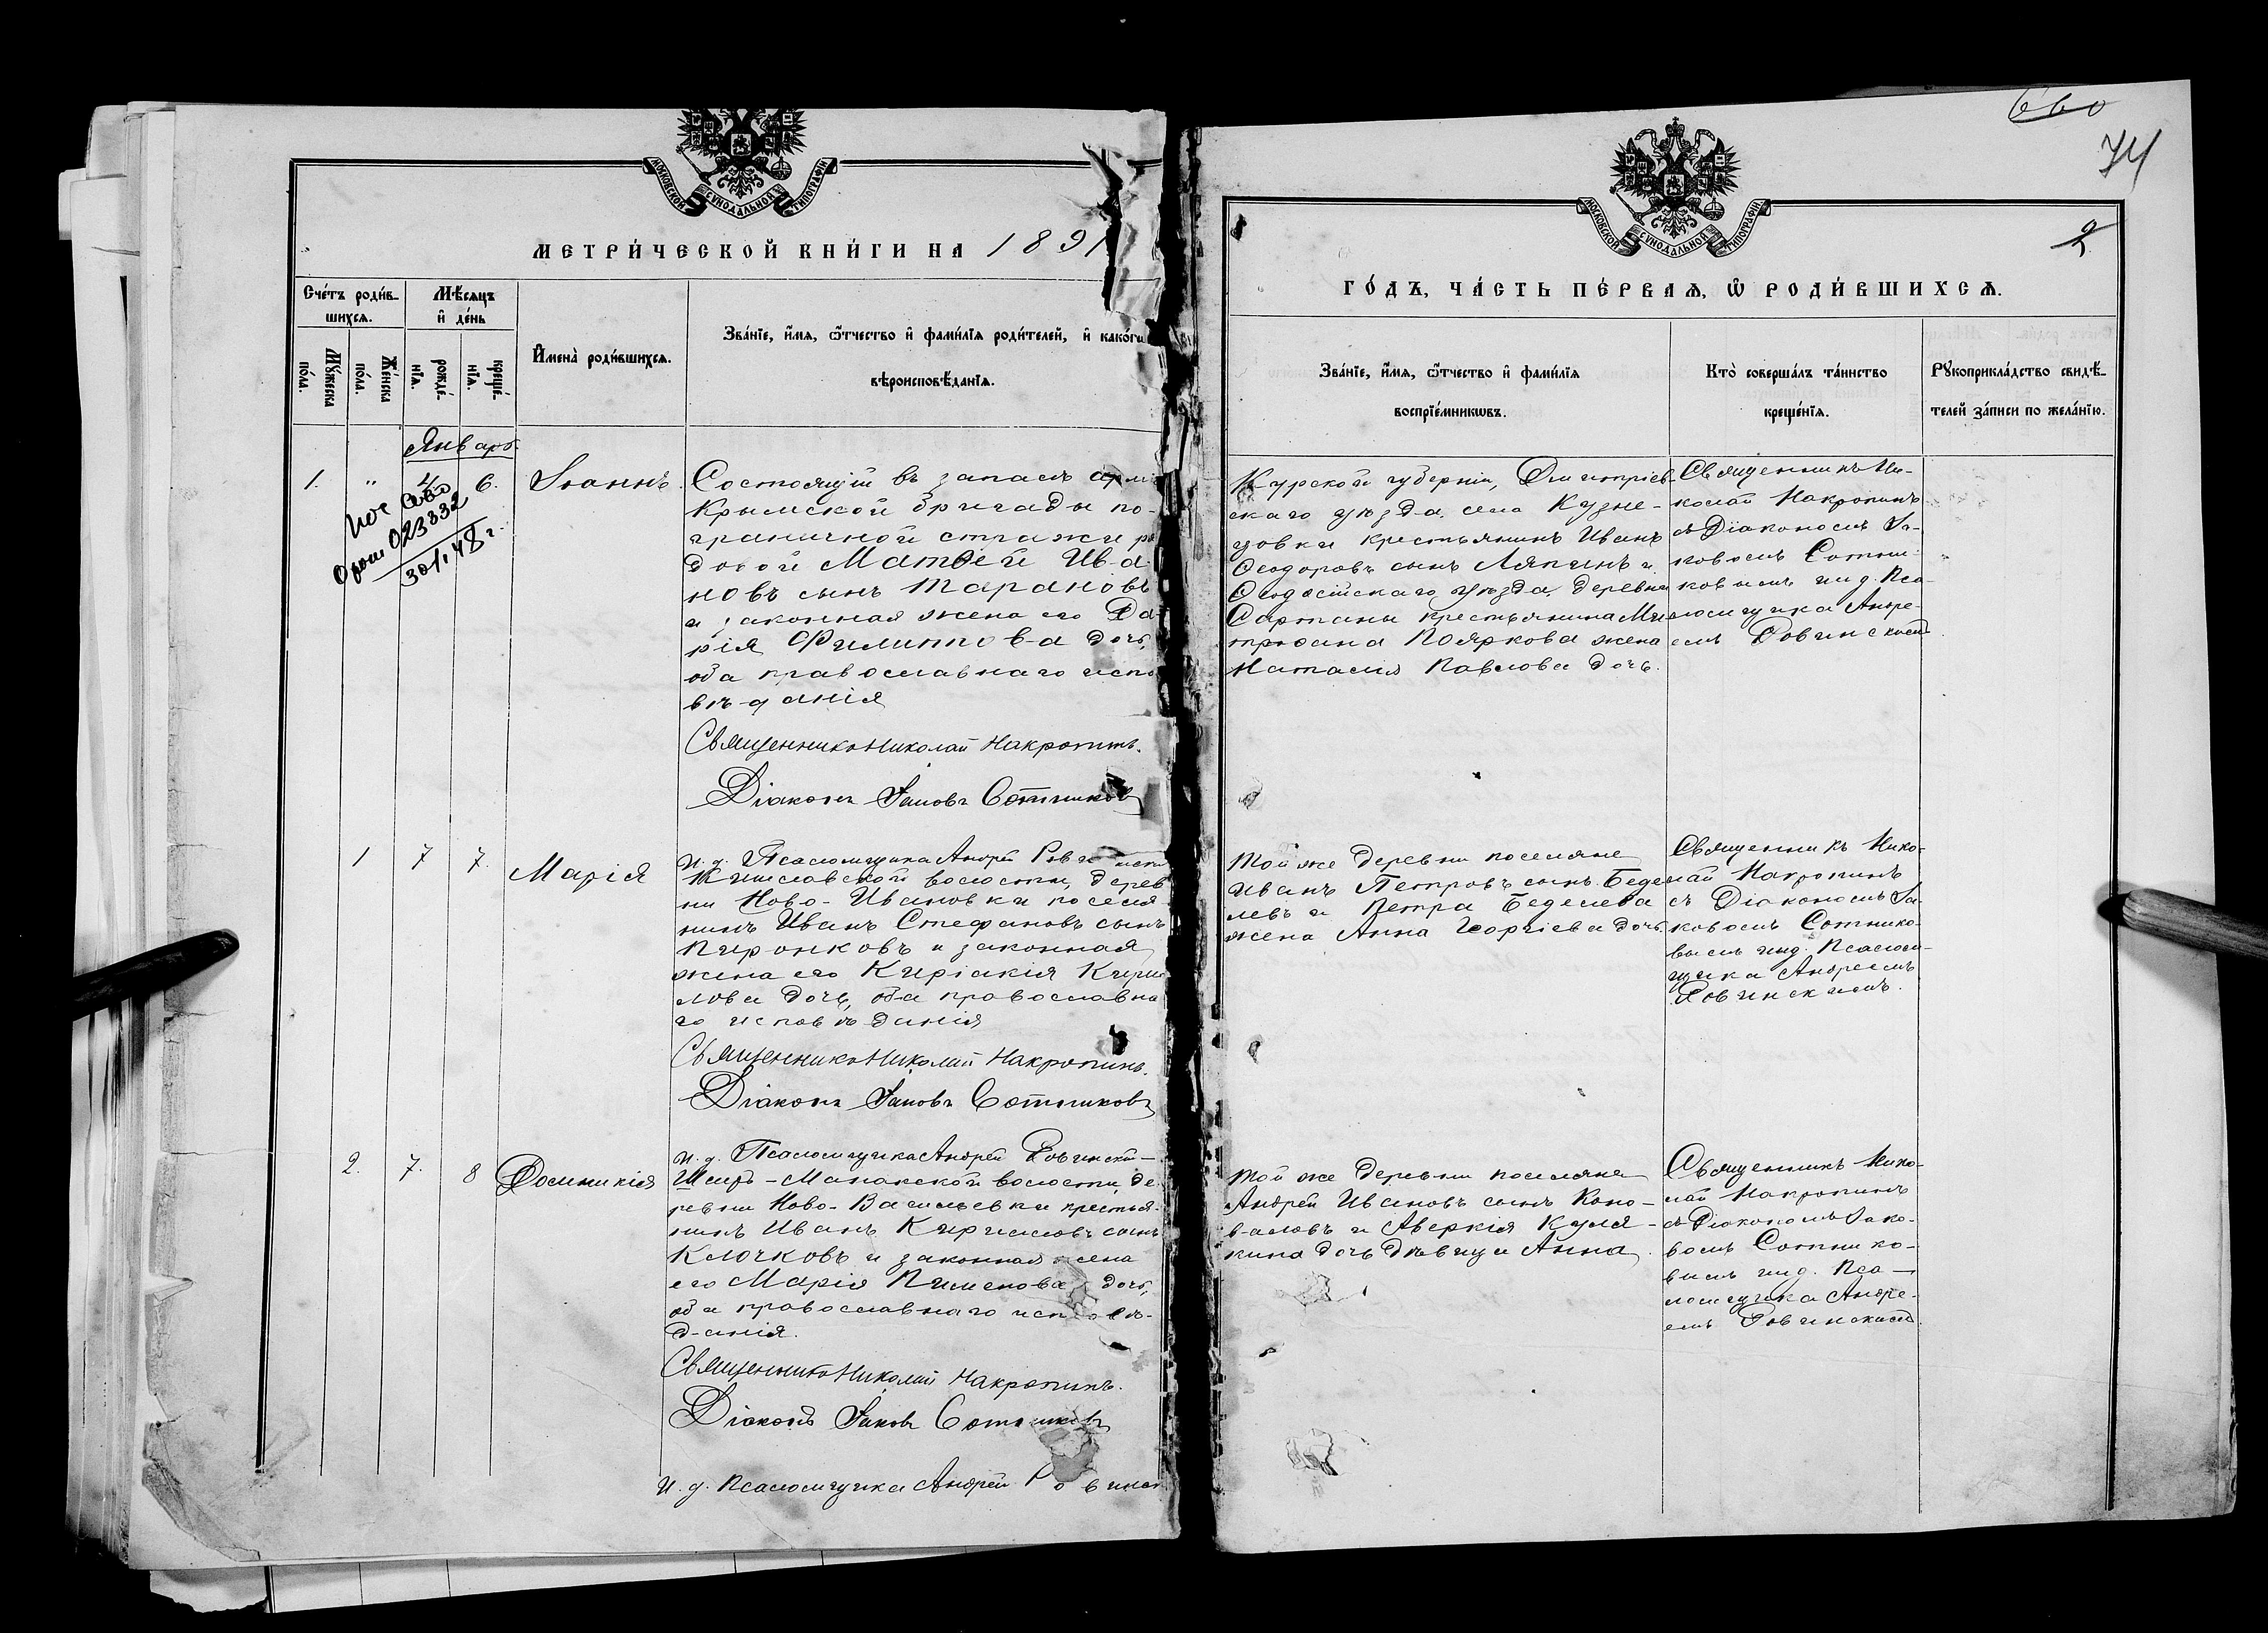 МЕТРИ́ЧЕСКОЙ КНИ́ГИ НА 1891
МОСКОВСКОЙ СУНОДАЛЬНОЙ ТИПОГРАФІИ
Сче́тъ роди́в-
шихсѧ.
Мѣ́сѧцъ
и҆ де́нь
Мꙋ́жеска
по́ла.
Же́нска
по́ла.
рожде́-
нїѧ.
креще́-
нїѧ.
И҆мена̀ роди́вшихсѧ.
Зва́нїе, и҆́мѧ, ѻ҆́тчество и҆ фами́лїѧ роди́телей, и҆ како́гѡ
вѣроисповѣ́данїѧ.
Январь.
1. " 4 6. Іоаннъ.
023832
30/I 48 г.
Состоящій въ запасѣ армі
Крымской бригады по-
граничной стражи ря
довой Матѳей Ива
новъ сынъ Тарановъ
и законная жена его Да
рія Филиппова дочь,
оба православнаго испо
вѣданія
Священникъ Николай Накропинъ.
Діаконъ Іаковъ Сотниковъ
1 7 7. Марія
И. д. Псаломщика Андрей Ровинскій
Кишлавской волости, дерев
ни Ново-Ивановки поселя-
нинъ Иванъ Стефановъ сынъ
Пиронковъ и законная
жена его Киріакія Кирил
лова дочь, оба православна
го исповѣданія
Священникъ Николай Накропинъ.
Діаконъ Іаковъ Сотниковъ
2. 7. 8 Домникія
И. д. Псаломщика Андрей Ровинскій
Шейхъ-Манакской волости, де
ревни Ново-Васильевки крестья-
нинъ Иванъ Кирилловъ сынъ
Клочковъ и законная жена
его Марія Пименова дочь,
оба православнаго исповѣ-
данія.
Священникъ Николай Накропинъ.
Діаконъ Іаковъ Сотниковъ
И. д. Псаломщика Андрей Ровинскі
74
2
МОСКОВСКОЙ СУНОДАЛЬНОЙ ТИПОГРАФІИ
ГО́ДЪ, ЧА́СТЬ ПЕ́РВАѦ, Ѽ РОДИ́ВШИХСѦ.
Зва́нїе, и҆́мѧ, ѻ҆́тчество и҆ фами́лїѧ
воспрїе́мникѡвъ.
Кто̀ соверша́лъ та́инство
креще́нїѧ.
Рꙋкоприкла́дство свидѣ́-
телей за́писи по жела́нїю.
Курской губерніи, Дмитріев-
скаго уѣзда, села Кузне-
цовки крестьянинъ Иванъ
Ѳеодоровъ сынъ Ляпинъ и
Ѳеодосійскаго уѣзда, деревни
Сартаны крестьянина Ми
трофана Пояркова жена
Наталія Павлова дочь.
Священникъ Ни-
колай Накропинъ
съ Діакономъ Іа-
ковомъ Сотни-
ковымъ и и.д. Пса-
ломщика Андре-
емъ Ровинскимъ
Той же деревни поселяне
Иванъ Петровъ сынъ Беде
левъ и Петра Беделева
жена Анна Георгіева дочь.
Священникъ Нико-
лай Накропинъ
съ Діакономъ Іа-
ковомъ Сотнико-
вымъ и и.д. Псалом-
щика Андреемъ
Ровинскимъ.
Той же деревни поселяне
Андрей Ивановъ сынъ Коно-
валовъ и Аверкія Куля-
кина дочь дѣвица Анна
Священникъ Нико-
лай Накропинъ
съ Діакономъ Іако-
вомъ Сотнико-
вымъ и и.д. Пса-
ломщика Андре-
емъ Ровинскимъ